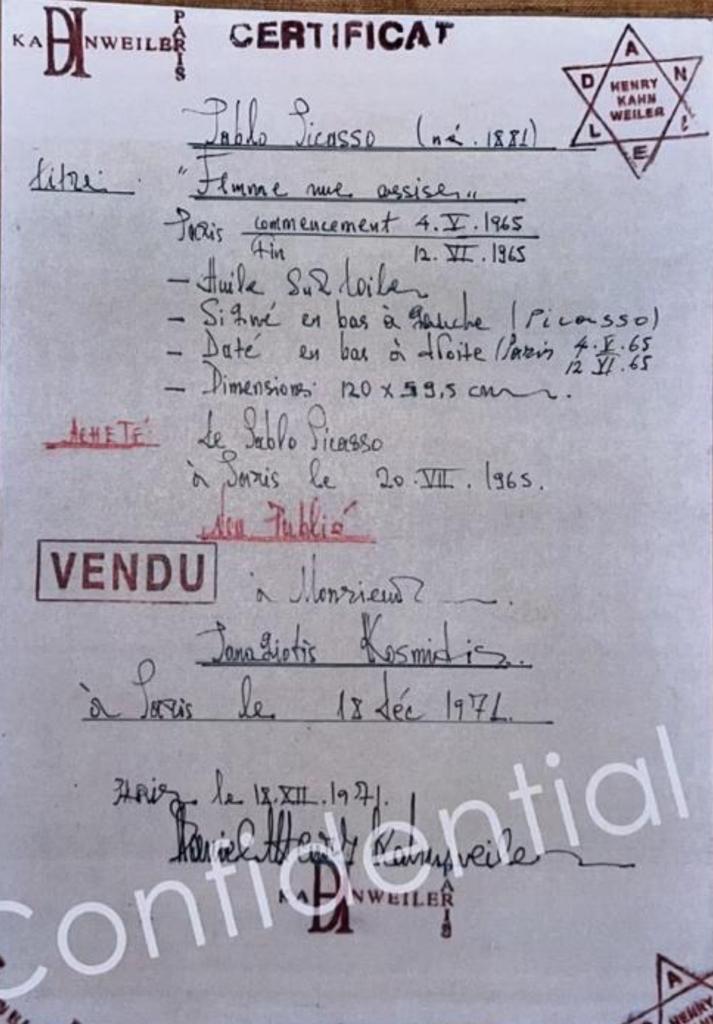 KA DH NWEILER PARIS
CERTIFICAT
DANIEL
HENRY
KAHN
WEILER
Pablo Picasso (né. 1881)
titre: "Femme nue assise"
Paris commencement 4.V.1965
fin 12.VI.1965
- Huile sur toile
- Signé en bas à gauche (Picasso)
- Daté en bas à droite (Paris 4.V.65
12 VI.65
- Dimensions: 120 x 59,5 cm.
ACHETÉ de Pablo Picasso
à Paris le 20.VII.1965.
Non Publié
VENDU à Monsieur
Panagiotis Kosmidis.
à Paris le 18 déc 1971.
Paris le 18.XII.1971.
Daniel Henry Kahnweiler
KA DH NWEILER PARIS
Confidential
A
HENRY